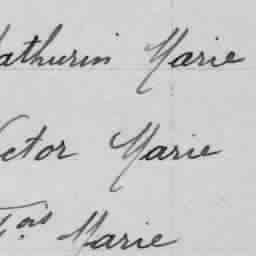 Mathurin Marie
Victor Marie
Fois Marie